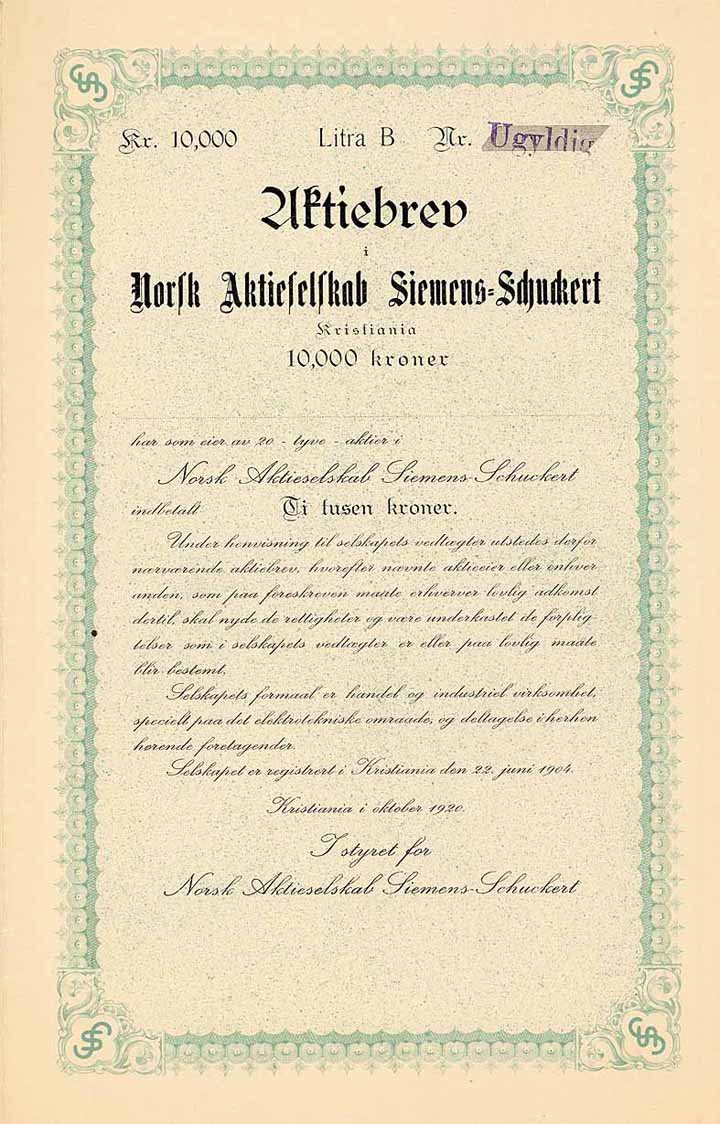 Kr. 10,000 Litra B Nr. Ugyldig
Aktiebrev
i
Norsk Aktieselskab Siemens-Schuckert
Kristiania
10,000 kroner
har som eier av 20 - tyve - aktier i
Norsk Aktieselskab Siemens-Schuckert
indbetalt Ti tusen kroner.
Under henvisning til selskapets vedtægter utstedes derfor
nærværende aktiebrev, hvorefter nævnte aktieeier eller enhver
anden, som paa foreskreven maate erhverver lovlig adkomst
dertil, skal nyde de rettigheter og være underkastet de forplig
telser som i selskapets vedtægter er eller paa lovlig maate
blir bestemt.
Selskapets formaal er handel og industriel virksomhet,
specielt paa det elektrotekniske omraade, og deltagelse i herhen
hørende foretagender.
Selskapet er registrert i Kristiania den 22. juni 1904.
Kristiania i oktober 1920.
I styret for
Norsk Aktieselskab Siemens-Schuckert